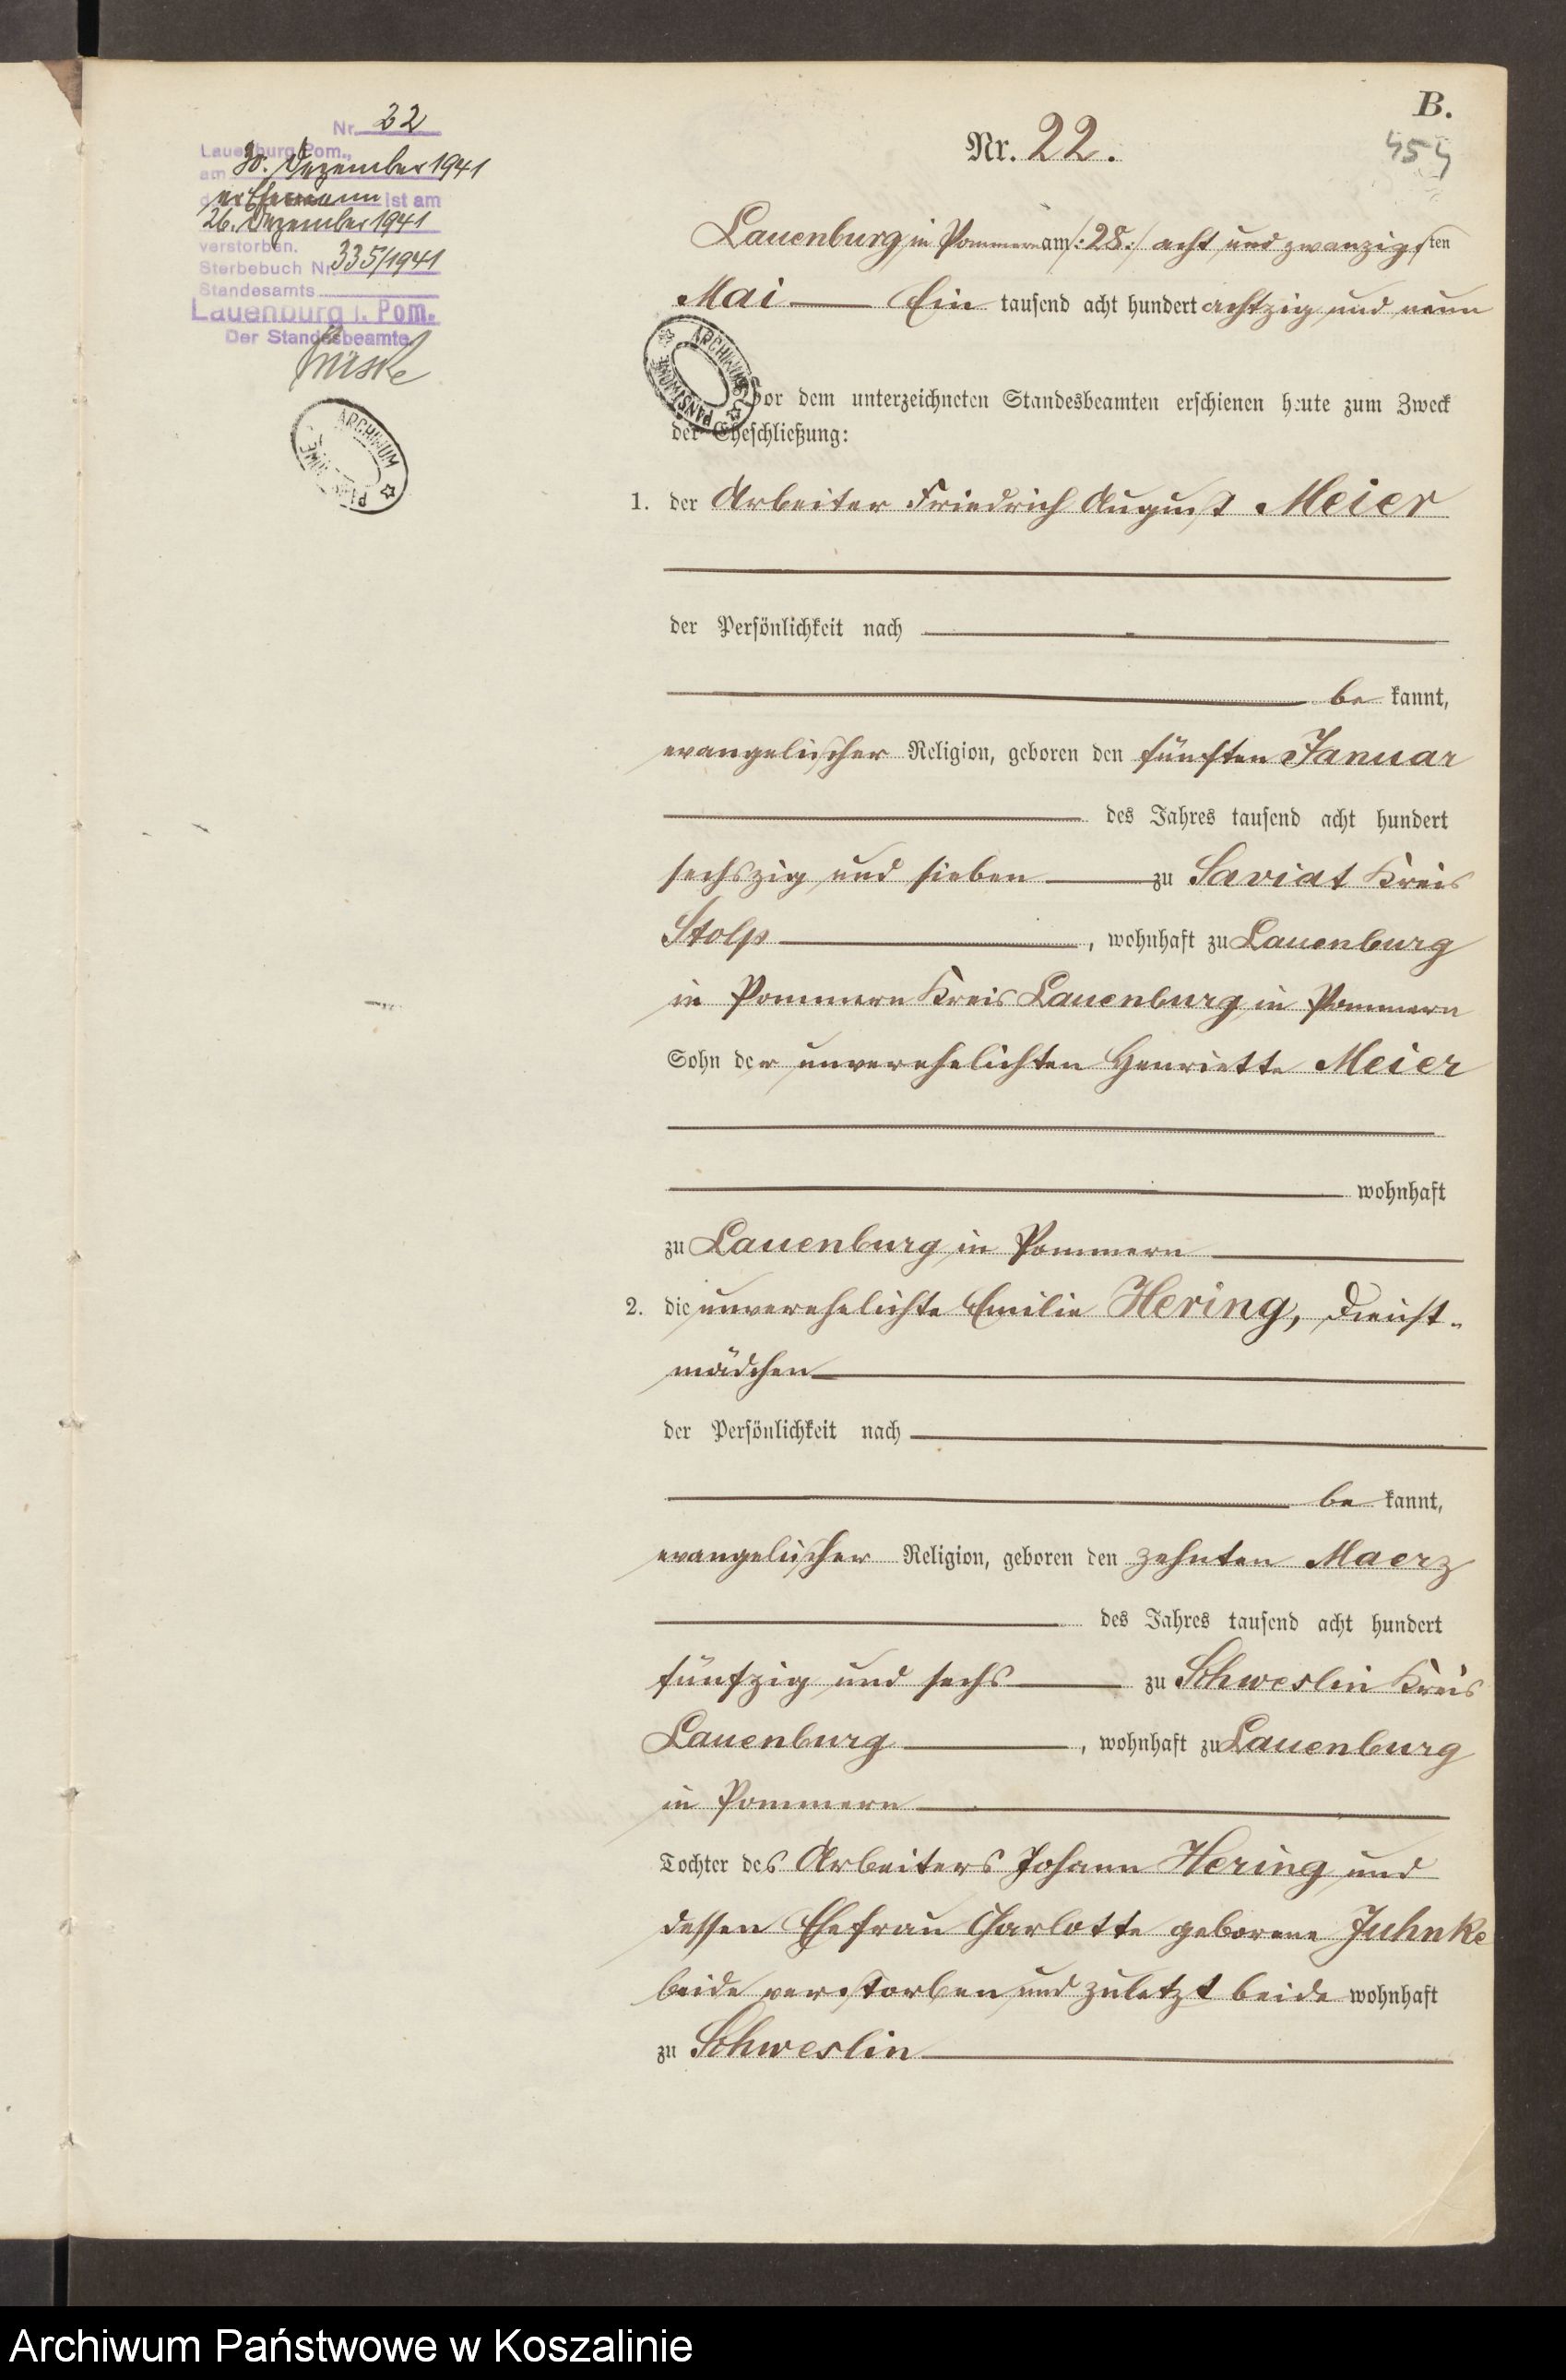 B.
Nr. 22.
Nr. 22
Lauenburg Pom.,
am 30. Dezember 1941
der Ehemann ist am
26. Dezember 1941
verstorben.
Sterbebuch Nr. 335/1941
Standesamts
Lauenburg i. Pom.
Der Standesbeamte
ARCHIWUM
Lauenburg in Pommern am /:28:/ acht und zwanzigsten
Mai Ein tausend acht hundert achtzig und neun
ARCHIWUM PAŃSTWOWE
Vor dem unterzeichneten Standesbeamten erschienen heute zum Zweck
der Eheschließung:
1. der Arbeiter Friedrich August Meier
der Persönlichkeit nach
be kannt,
evangelischer Religion, geboren den fünften Januar
des Jahres tausend acht hundert
sechszig und sieben zu Saviat Kreis
Stolp, wohnhaft zu Lauenburg
in Pommern Kreis Lauenburg in Pommern
Sohn der unverehelichten Henriette Meier
wohnhaft
zu Lauenburg in Pommern
2. die unverehelichte Emilie Hering, Dienst-
mädchen
der Persönlichkeit nach
be kannt,
evangelischer Religion, geboren den zehnten Maerz
des Jahres tausend acht hundert
fünfzig und sechs zu Schweslin Kreis
Lauenburg, wohnhaft zu Lauenburg
in Pommern
Tochter des Arbeiters Johann Hering und
dessen Ehefrau Charlotte geborene Juhnke
beide verstorben und zuletzt beide wohnhaft
zu Schweslin
Archiwum Państwowe w Koszalinie